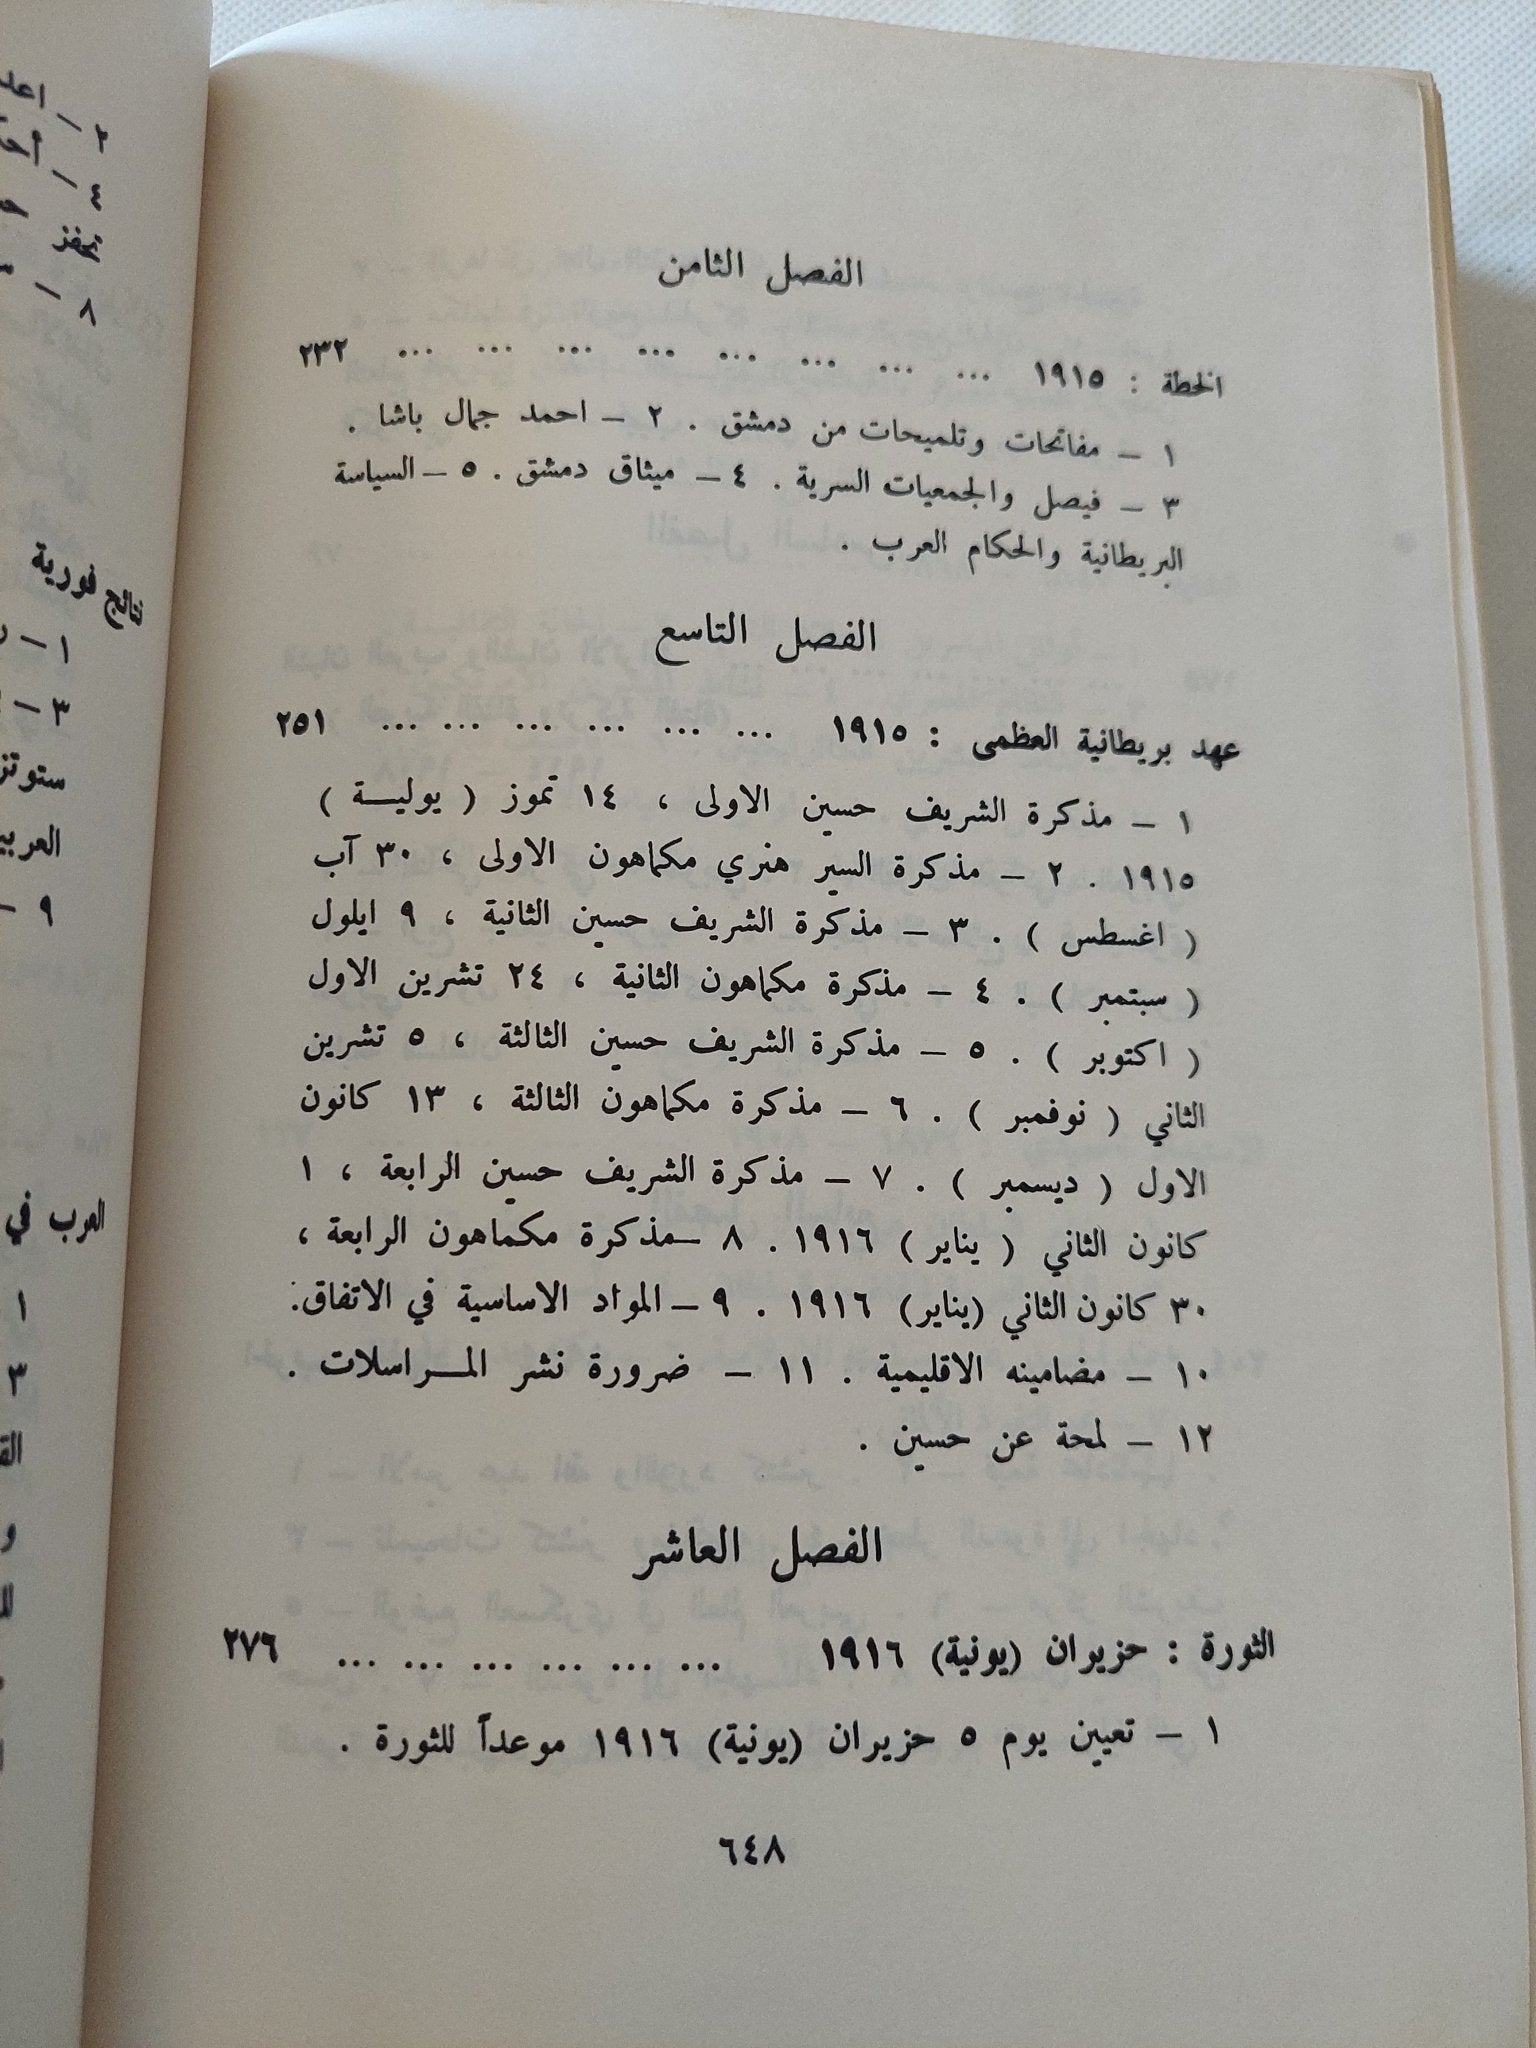 الفصل الثامن
الخطة : ١٩١٥ ... ... ... ... ... ... ... ... ٢٣٢
١ – مفاتحات وتلميحات من دمشق . ٢ – احمد جمال باشا .
٣ – فيصل والجمعيات السرية . ٤ – ميثاق دمشق . ٥ – السياسة
البريطانية والحكام العرب .
الفصل التاسع
عهد بريطانية العظمى : ١٩١٥ ... ... ... ... ... ... ٢٥١
١ – مذكرة الشريف حسين الاولى ، ١٤ تموز ( يوليـــة )
١٩١٥ . ٢ – مذكرة السير هنري مكماهون الاولى ، ٣٠ آب
( اغسطس ) . ٣ – مذكرة الشريف حسين الثانية ، ٩ ايلول
( سبتمبر ) . ٤ – مذكرة مكماهون الثانية ، ٢٤ تشرين الاول
( اكتوبر ) . ٥ – مذكرة الشريف حسين الثالثة ، ٥ تشرين
الثاني ( نوفمبر ) . ٦ – مذكرة مكماهون الثالثة ، ١٣ كانون
الاول ( ديسمبر ) . ٧ – مذكرة الشريف حسين الرابعة ، ١
كانون الثاني ( يناير ) ١٩١٦ . ٨ –مذكرة مكماهون الرابعة ،
٣٠ كانون الثاني (يناير) ١٩١٦ . ٩ – المواد الاساسية في الاتفاق.
١٠ – مضامينه الاقليمية . ١١ – ضرورة نشر المـــراسلات .
١٢ – لمحة عن حسين .
الفصل العاشر
الثورة : حزيران (يونية) ١٩١٦ ... ... ... ... ... ... ٢٧٦
١ – تعيين يوم ٥ حزيران (يونية) ١٩١٦ موعداً للثورة .
٦٤٨
نتائج فورية
العرب في